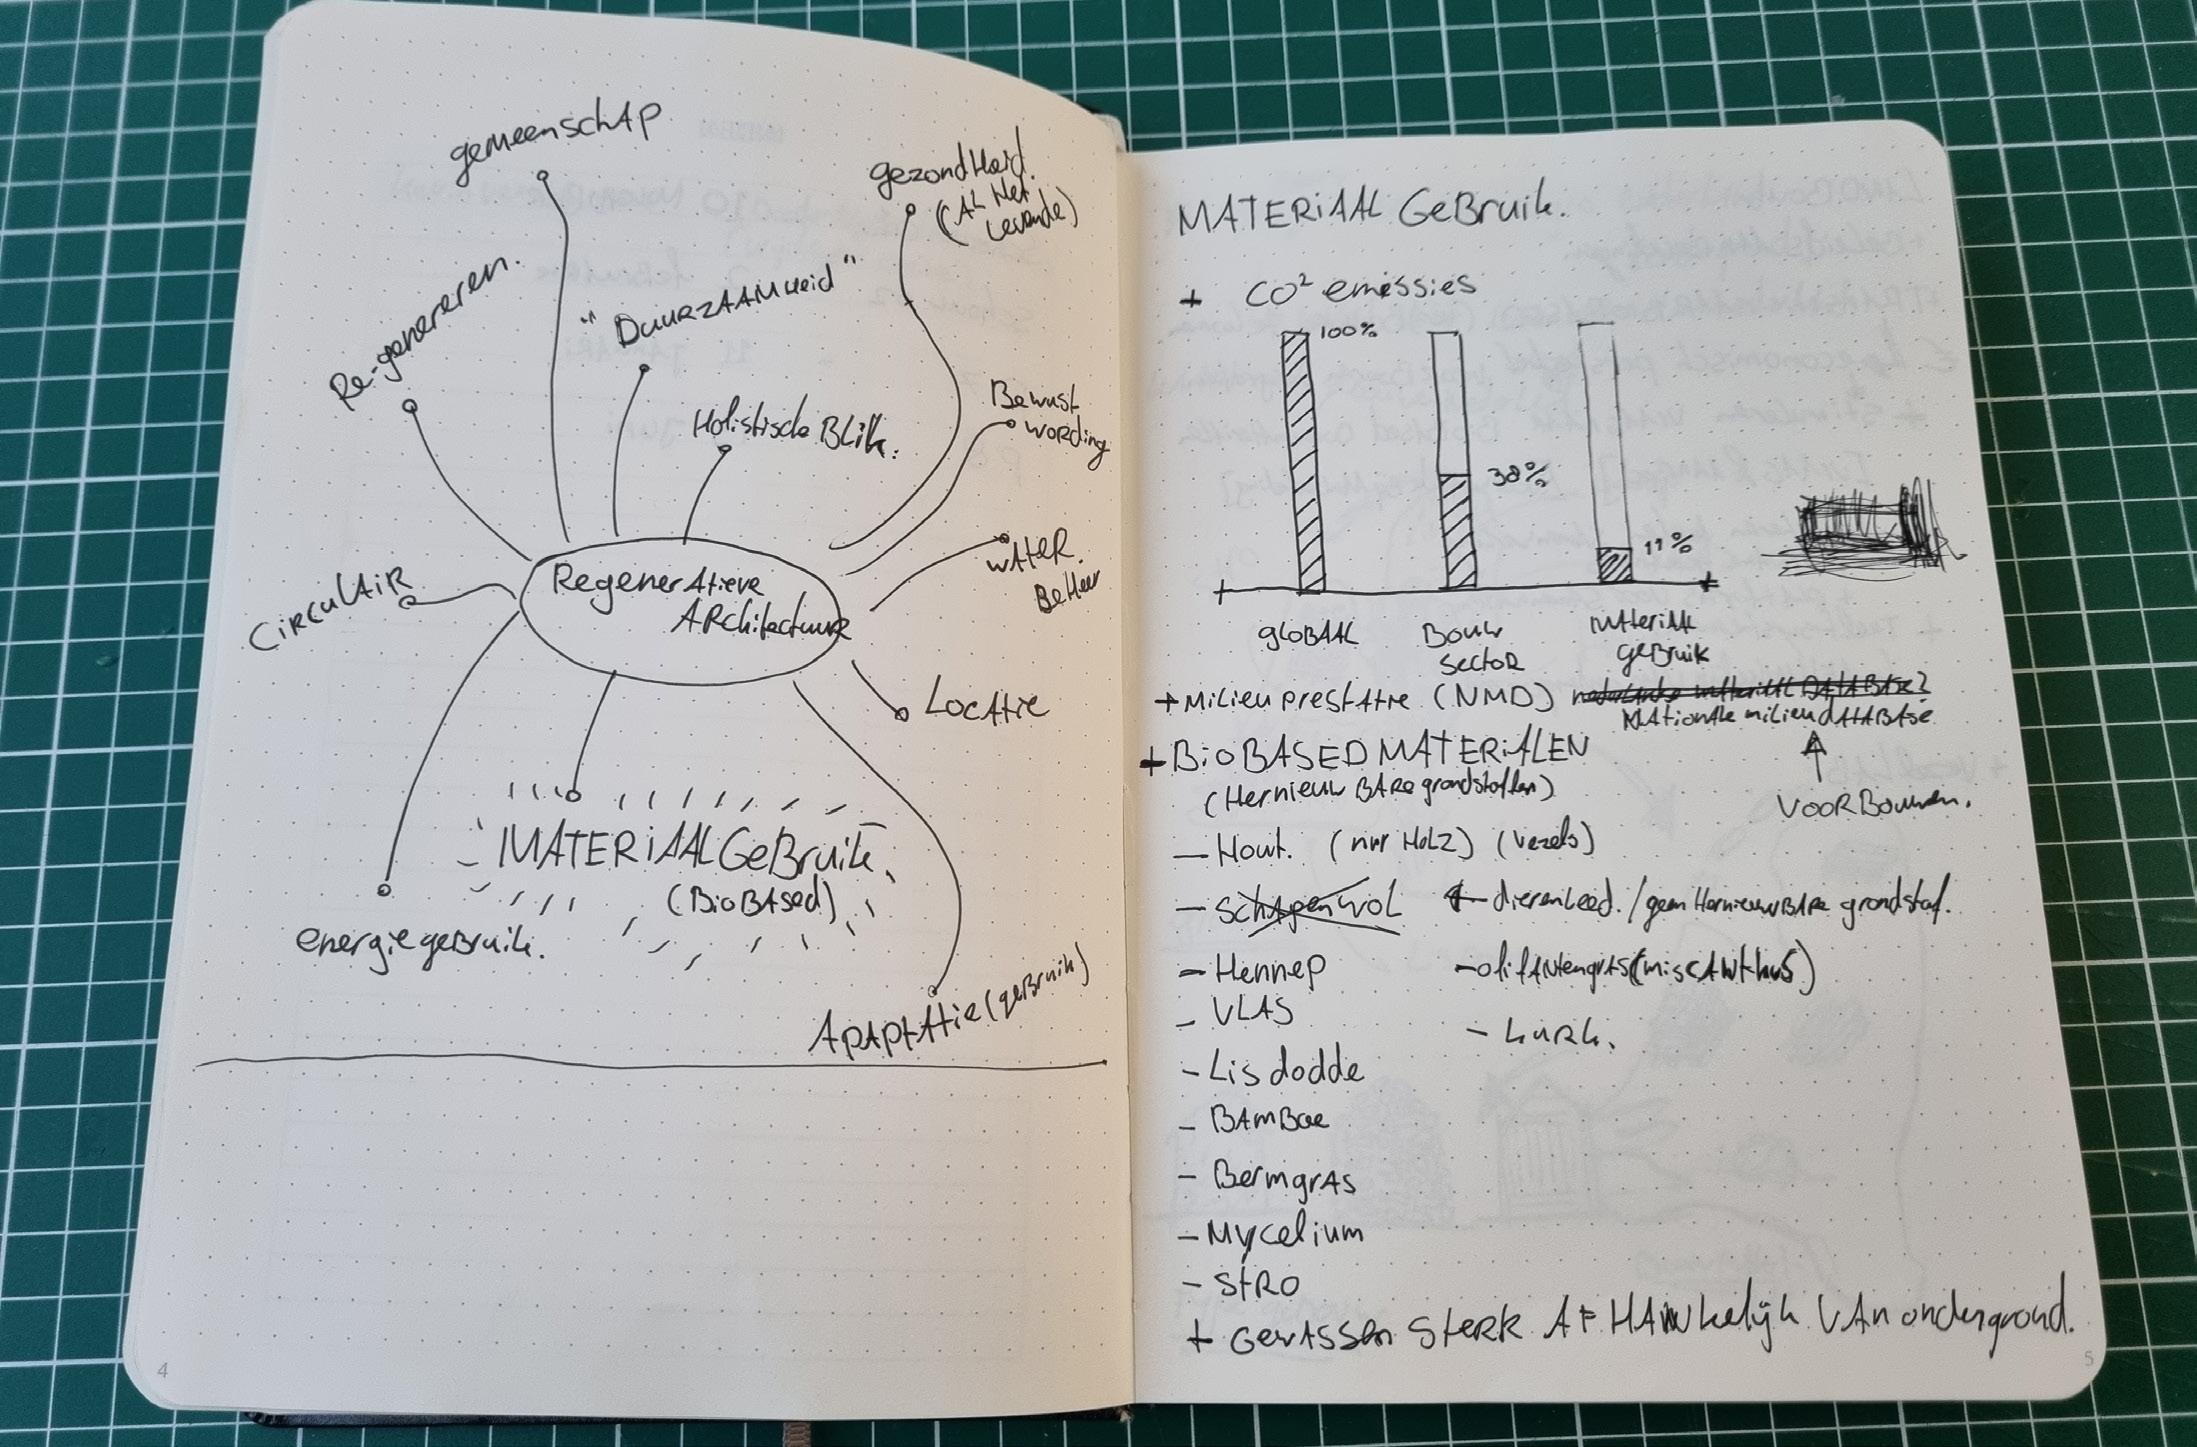 gemeenschap
gezondheid.
(al het
levende)
Re-genereren.
"Duurzaamheid"
Holistische Blik.
Bewust
wording
Regeneratieve
Architectuur
water
Beheer
Circulair
Locatie
MATERIAAL GeBruik.
(BioBAsed)
energiegebruik.
Apaptatie (gebruik)
4
MATERIAAL GeBruik.
+ CO² emissies
100%
38%
11%
gloBAAL
Bouw
sector
materiaal
gebruik
+ Milieu prestatie (NMD)
Nationale milieu dATABASe
+ BioBASED MATERiALEN
(HernieuwBAre grondstoffen)
VOORBouwen.
- Hout. (nur Holz) (vezels)
- Schapenwol ← dierenleed. / geen HernieuwBAre grondstof.
- Hennep
- olifantengras (miscanthus)
- VLAS
- kurk.
- Lisdodde
- BAmBoe
- BermgrAs
- Mycelium
- StRo
+ Gewassen sterk AFHANkelijk VAn ondergrond.
5